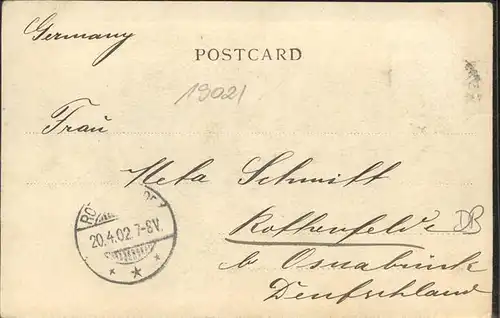 Germany
POSTCARD
1902
Frau
Meta Schmitt
Rothenfelde
DB
b Osnabrück
Deutschland
20.4.02. 7-8V.